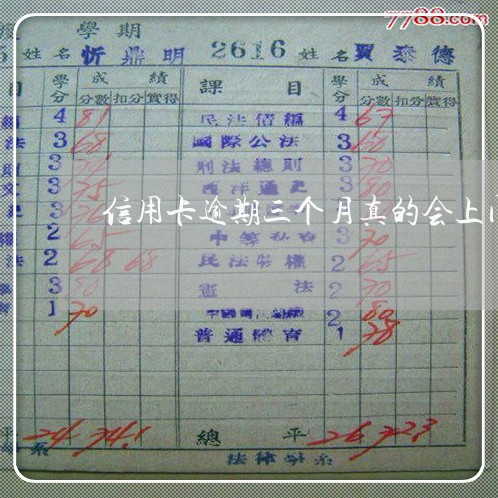 7788.com
學期
姓名 忻鼎明 2616 姓名 賈泰德
目 學分 成績 課目 學分 成績
分數 扣分 實得 分數 扣分 實得
4 81 民法債編 4 67
法 3 68 國際公法 3 60
3 刑法總則 3 70
3 75 西洋通史 3 80
信用卡逾期三个月真的会上
2 65 3 70
法 2 68 68 民法物權 2 65
3 80 憲法 2 70
1 70 2 80
普通體育 1 78
24 74.1 總平 26 72.3
系 法律學系